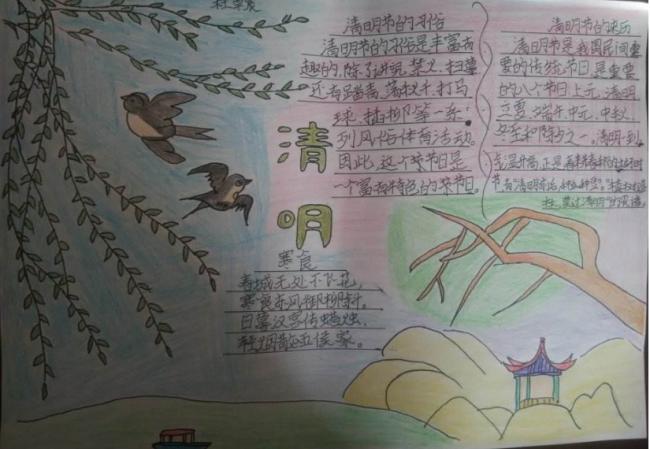 清明节的习俗
清明节的习俗是丰富有
趣的,除了讲究禁火、扫墓
还有踏青、荡秋千、打马
球、插柳等一系
列风俗体育活动。
因此,这个节日是
一个富有特色的节日。
清明节的来历
清明节是我国民间重
要的传统节日,是重要
的八个节日上元、清明、
立夏、端午、中元、中秋、
冬至和除夕之一。清明一到,
气温升高,正是
节,有"清明前后,种瓜种豆"
清明
寒食
春城无处不飞花,
寒食东风御柳斜。
日暮汉宫传蜡烛,
轻烟散入五侯家。